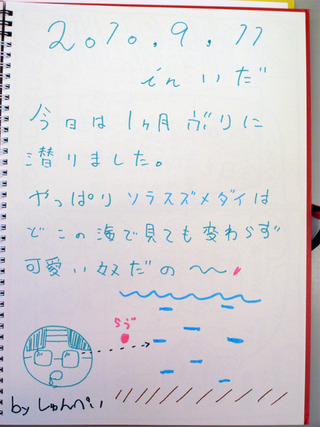 2010.9.11
in いだ
今日は1ヶ月ぶりに
潜りました。
やっぱり ソラスズメダイは
どこの海で見ても変わらず
可愛い奴だの〜
らぶ
by しゅんぺい